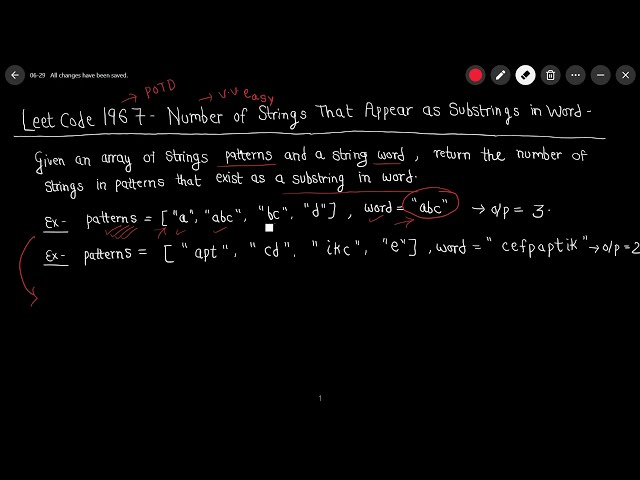 06-29 All changes have been saved.
→ POTD
→ v.v easy
Leet Code 1967 - Number of Strings That Appear as Substrings in Word -
Given an array of strings patterns and a string word, return the number of
strings in patterns that exist as a substring in word.
Ex- patterns = ["a", "abc", "bc", "d"], word = "abc" → o/p = 3.
Ex- patterns = ["apt", "cd", "ikc", "e"], word = "cefpaptik" → o/p = 2
1